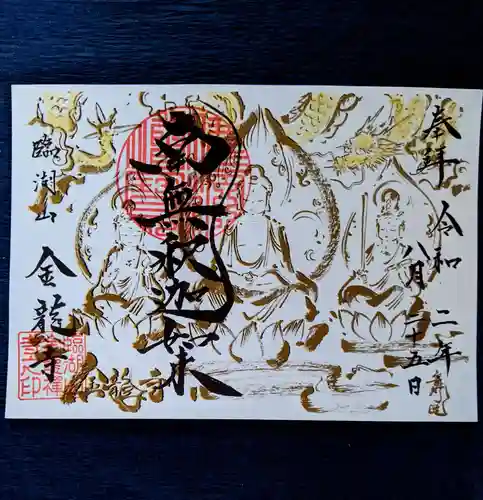 奉拝
令和二年
八月二十五日
南無釈迦如来
臨湖山
金龍寺